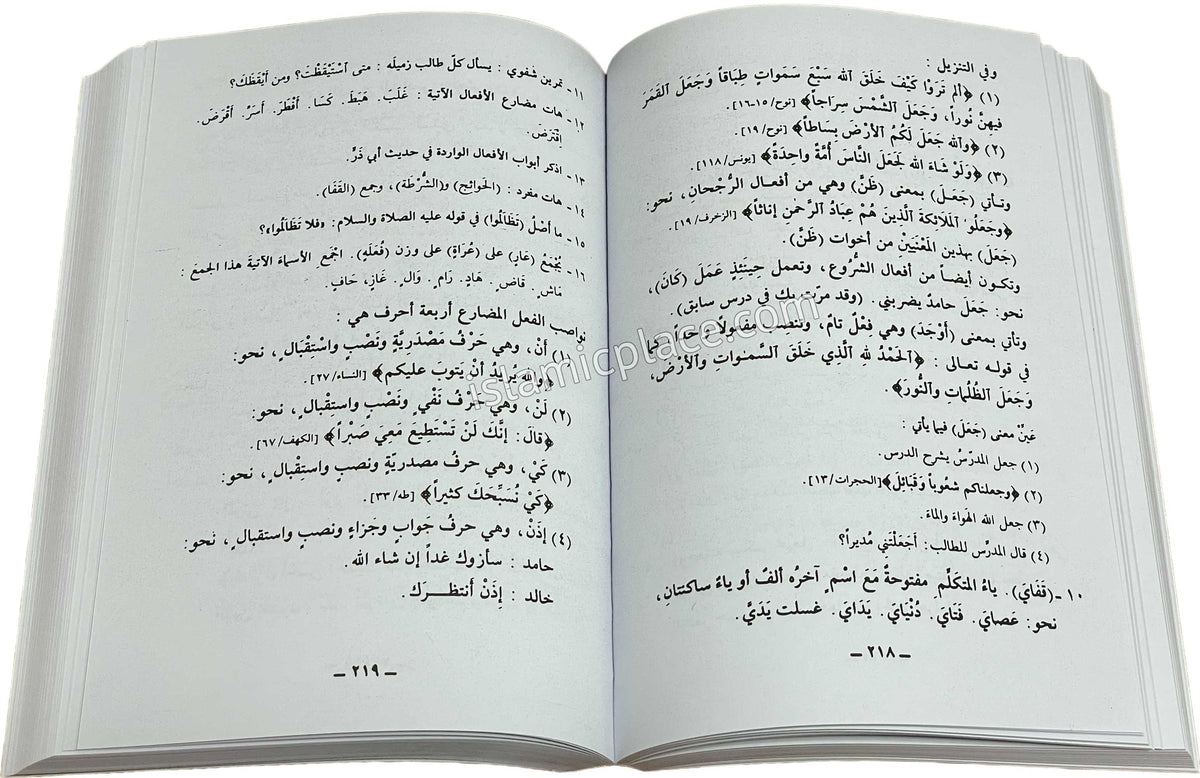 وفي التنزيل :
(١) ﴿أَلم تَرَوْا كَيْفَ خَلَقَ الله سَبْعَ سَمَواتٍ طِبَاقاً وَجَعَلَ القَمَرَ
فِيهِنَّ نُوراً، وَجَعَلَ الشَّمْسَ سِرَاجاً﴾ [نوح/ ١٥-١٦].
(٢) ﴿والله جَعَلَ لَكُمُ الأرْضَ بِسَاطاً﴾ [نوح/ ١٩].
(٣) ﴿وَلَوْ شَاءَ الله لَجَعَلَ النَّاسَ أُمَّةً واحِدَةً﴾ [يونس/ ١١٨].
وتـأتي (جَعَـلَ) بمعنى (ظَنَّ) وهي من أفعـال الرُّجْحانِ، نحو:
﴿وجَعَلُوا المَلَائكَةَ الَّذينَ هُمْ عِبَادُ الرَّحْمٰنِ إنَاثاً﴾ [الزخرف/ ١٩].
(جَعَلَ) بهذين المَعْنَيَيْنِ من أخوات (ظَنَّ).
وتكـون أيضـاً من أفعال الشُّرُوع، وتعمل حِينَئِذٍ عَمَلَ (كَانَ)،
نحو: جَعَلَ حامدٌ يضربني. (وقد مرّت بك في درس سابق).
وتأتي بمعنى (أوْجَدَ) وهي فِعْلٌ تامٌ، وتنصِب مفعولاً واحداً كما
في قولـه تعالى : ﴿الحَمْدُ للهِ الَّذِي خَلَقَ السَّمٰواتِ والأرْضَ،
وَجَعَلَ الظُلُماتِ والنُّورَ﴾.
عَيِّنْ معنى (جَعَلَ) فيما يأتي :
(١) جعل المدرّسُ يشرح الدرس.
(٢) ﴿وجعلناكم شعُوباً وَقَبَائِلَ﴾ [الحجرات/ ١٣].
(٣) جعل الله الهَواءَ والماءَ.
(٤) قال المدرّس للطالب: أجَعَلْتَنِي مُديراً؟
١٠ـ (قَفَايَ). ياءُ المتكَلِّمِ مفتوحةٌ مَعَ اسْمٍ آخرُه ألفٌ أو ياءٌ ساكنتانِ،
نحو: عَصايَ. فَتَايَ. دُنْيَايَ. يَدَايَ. غسلت يَدَيَّ.
ــ ٢١٨ ــ
١١ـ تمرين شفوي : يسأل كلّ طالب زميلَه : متى اسْتَيْقَظْتَ؟ ومن أيْقَظَكَ؟
١٢ـ هات مضارع الأفعال الآتية : غَلَبَ. هَبَطَ. كَسَا. أفْطَرَ. أسَرَّ. أقْرَضَ.
اِقْتَرَضَ.
١٣ـ اذكر أبواب الأفعال الواردة في حديث أبي ذَرٍّ.
١٤ـ هات مفرد : (الحَوائِج) و(الشُّرْطَة)، وجمع (القَفَا).
١٥ـ ما أصْلُ (تَظَالَمُوا) في قوله عليه الصلاة والسلام: «فلا تَظَالَمُوا»؟
١٦ـ يُجْمَعُ (عَارٍ) على (عُرَاةٍ) على وزن (فُعَلَةٍ). اجْمَعِ الأسماءَ الآتيةَ هذا الجمعَ :
مَاشٍ. قَاضٍ. هَادٍ. رَامٍ. وَالٍ. غَازٍ. حَافٍ.
نواصب الفعل المضارع أربعة أحرف هي :
(١) أنْ، وهي حَرْفُ مَصْدَرِيَّةٍ ونَصْبٍ واسْتْقْبالٍ، نحو:
﴿والله يُريدُ أنْ يَتوبَ عليكم﴾ [النساء/ ٢٧].
(٢) لَنْ، وهي حرْفُ نَفْيٍ ونَصْبٍ واستِقْبالٍ، نحو:
﴿قالَ: إنَّكَ لَنْ تَسْتَطِيعَ مَعِيَ صَبْراً﴾ [الكهف/ ٦٧].
(٣) كَيْ، وهي حرفُ مصدريّةٍ ونصبٍ واستِقْبالٍ، نحو:
﴿كَيْ نُسَبِّحَكَ كثيراً﴾ [طه/ ٣٣].
(٤) إذَنْ، وهي حرفُ جَوابٍ وجَزاءٍ ونصبٍ واستقبالٍ، نحو:
حامد : سأزوك غداً إن شاء الله.
خالد : إذَنْ أنتظـــرَك.
ــ ٢١٩ ــ
islamicplace.com